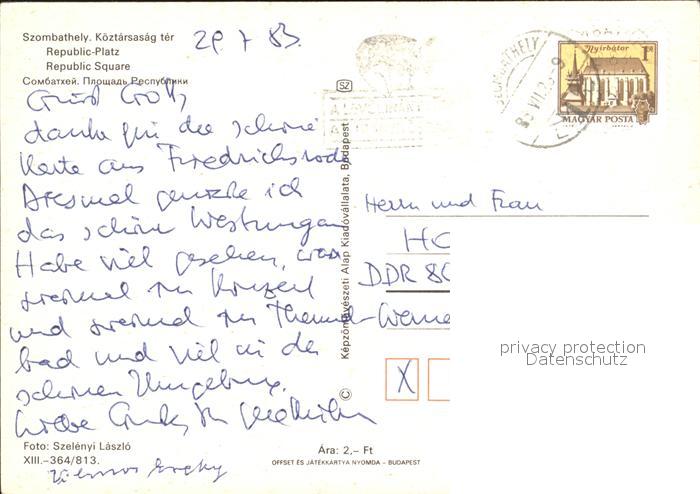 Szombathely. Köztársaság tér
Republic-Platz
Republic Square
Сомбатхей. Площадь Республики
29. 7 83.
Grüß Gott,
danke für die schöne
Karte aus Friedrichroda
Diesmal genieße ich
das schöne Westungarn
Habe viel gesehen, war
zweimal im Konzert
und zweimal im Thermal-
bad und viel in der
schönen Umgebung.
Liebe
Foto: Szelényi László
XIII.–364/813.
SZ
Képzőművészeti Alap Kiadóvállalata, Budapest
©
Ára: 2,– Ft
OFFSET ÉS JÁTÉKKÁRTYA NYOMDA – BUDAPEST
SZOMBATHELY
Nyírbátor
1 Ft
MAGYAR POSTA
Herrn und Frau
DDR
X
privacy protection
Datenschutz